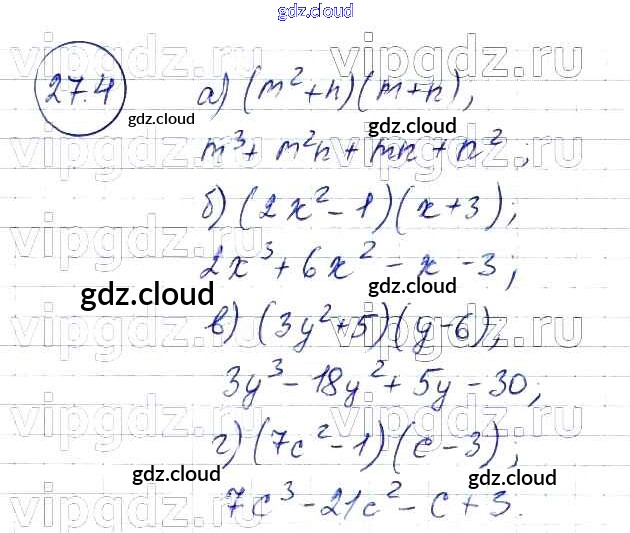 gdz.cloud
vipgdz.ru vipgdz.ru
27.4 а) (m²+n)(m+n),
gdz.cloud gdz.cloud
m³+ m²n + mn + n²;
vipgdz.ru vipgdz.ru
б) (2x² - 1)(x+3);
vipgdz.ru vipgdz.ru
2x³ + 6x² - x - 3;
gdz.cloud gdz.cloud
в) (3y²+5)(y-6),
vipgdz.ru vipgdz.ru
3y³ - 18y² + 5y - 30;
vipgdz.ru vipgdz.ru
г) (7c² - 1)(c - 3);
gdz.cloud gdz.cloud
7c³ - 21c² - c + 3.
vipgdz.ru vipgdz.ru